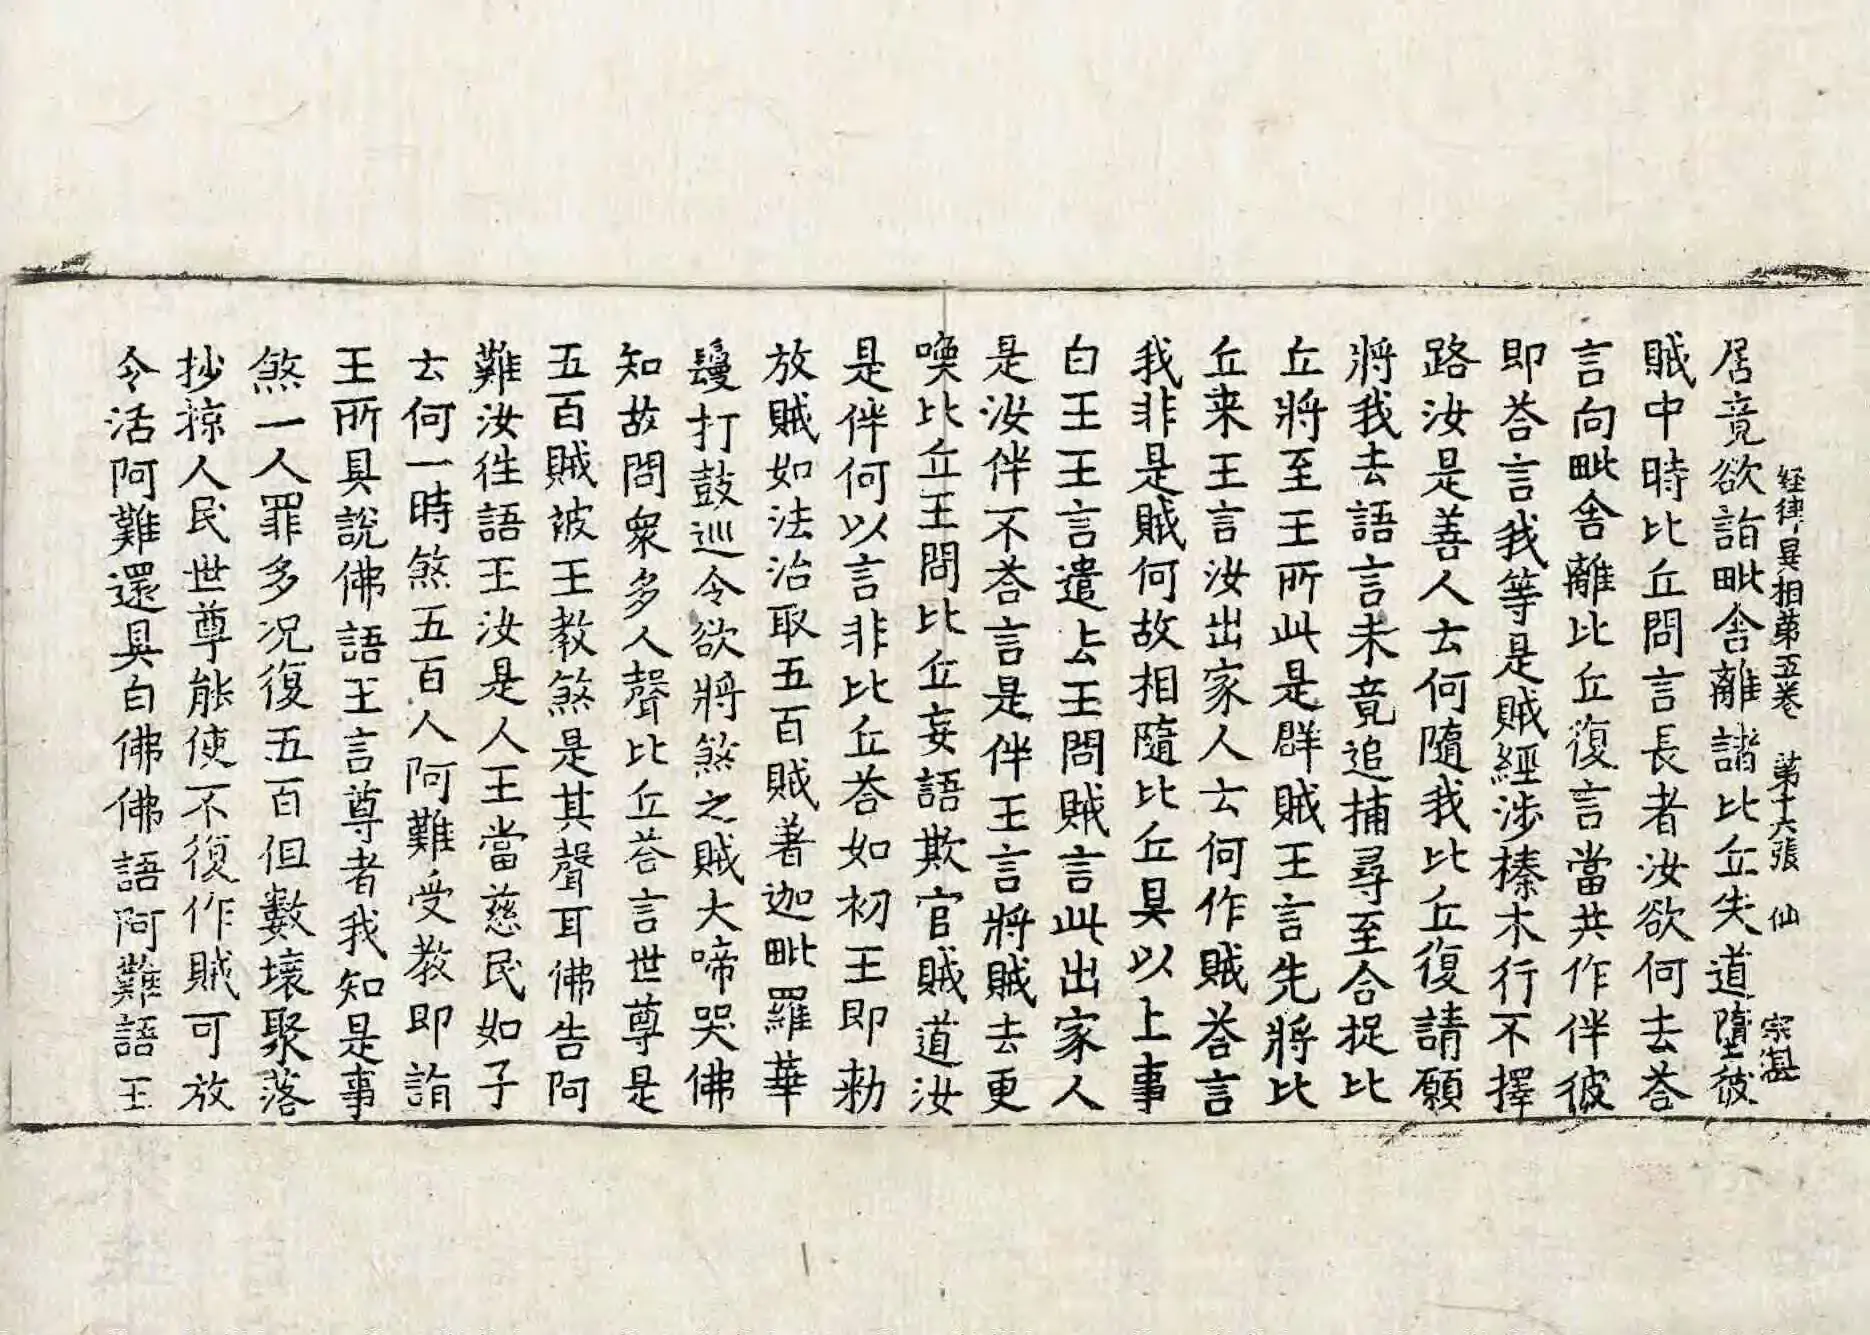 経律異相第五卷　第十六張　仙　宗湛
居竟欲詣毗舍離諸比丘失道墮彼
賊中時比丘問言長者汝欲何去荅
言向毗舍離比丘復言當共作伴彼
即荅言我等是賊經涉榛木行不擇
路汝是善人云何隨我比丘復請願
將我去語言未竟追捕尋至合捉比
丘將至王所此是群賊王言先將比
丘来王言汝出家人云何作賊荅言
我非是賊何故相隨比丘具以上事
白王王言遣去王問賊言此出家人
是汝伴不荅言是伴王言將賊去更
喚比丘王問比丘妄語欺官賊道汝
是伴何以言非比丘荅如初王即勑
放賊如法治取五百賊著迦毗羅華
鬘打鼓巡令欲將煞之賊大啼哭佛
知故問衆多人聲比丘荅言世尊是
五百賊被王教煞是其聲耳佛告阿
難汝徃語王汝是人王當慈民如子
云何一時煞五百人阿難受教即詣
王所具說佛語王言尊者我知是事
煞一人罪多况復五百但數壞聚落
抄掠人民世尊能使不復作賊可放
令活阿難還具白佛佛語阿難語王